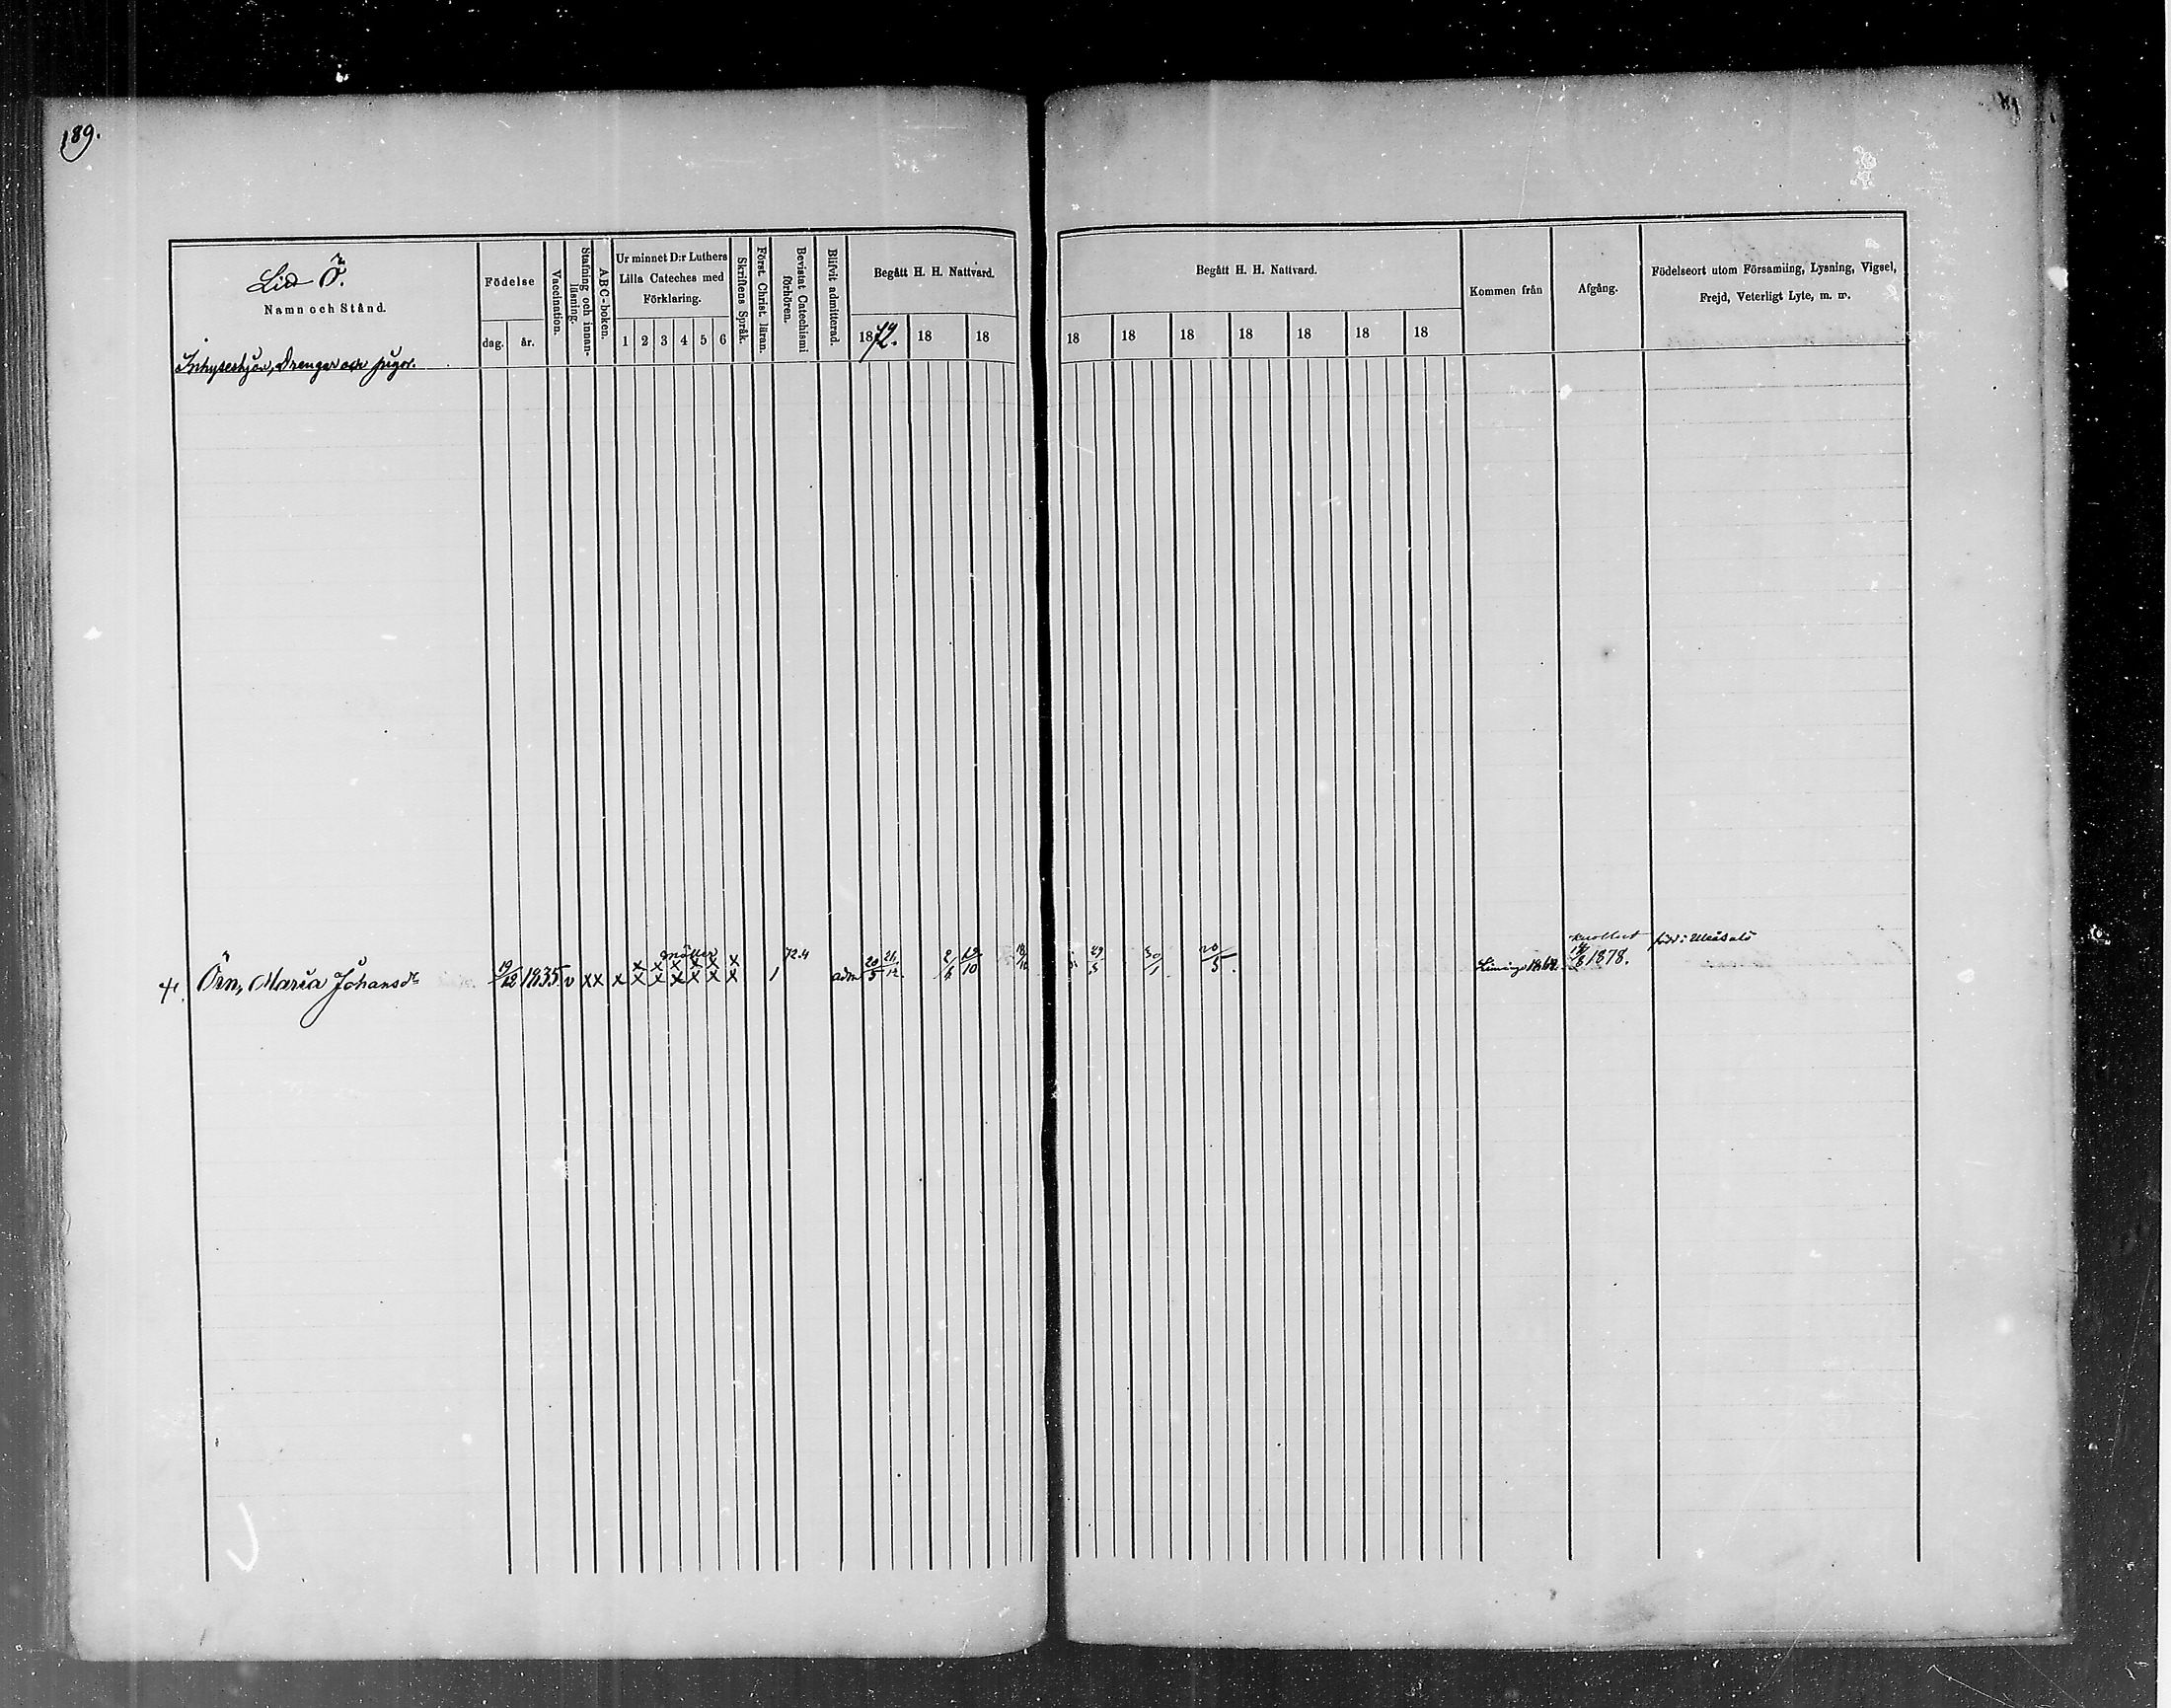 189.
Lid Ö.
Namn och Stånd.
Födelse
dag. år.
Vaccination.
Stafning och innan-
läsning.
ABC-boken.
Ur minnet D:r Luthers
Lilla Cateches med
Förklaring.
1 2 3 4 5 6
Skriftens Språk.
Först. Christ. läran.
Bevistat Catechismi
förhören.
Blifvit admitterad.
Begått H. H. Nattvard.
1872. 18 18
Begått H. H. Nattvard.
18 18 18 18 18 18 18
Kommen från
Afgång.
Födelseort utom Församling, Lysning, Vigsel,
Frejd, Veterligt Lyte, m. m.
Inhyseshjon, Drengar och pigor.
Örn, Maria Johansdr 19/12 1835 v x x x x x x x x x 1 72.4 adm 20/5 26/12 2/6 12/10 29/3 30/1 20/5 Limingo 1862. 1878. född i Uleåsalo